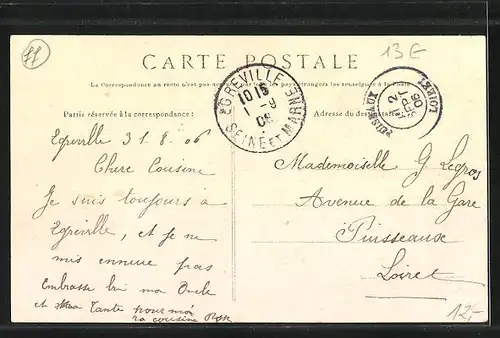 ff
13E
CARTE POSTALE
La Correspondance au recto n'est pas
Partie réservée à la correspondance :
Adresse du destinataire
EGREVILLE
10 15
1 - 9
06
SEINE ET MARNE
PUISEAUX
2
SEPT
06
LOIRET
Egreville 31.8.06
Chere Cousine
Je suis toujours à
Egreville, et je ne
mis ennuie pas
Embrasse bien mon Oncle
et ma Tante pour moi
ta cousine
Mademoiselle G. Legros
Avenue de la Gare
Puisseaux
Loiret
12,-